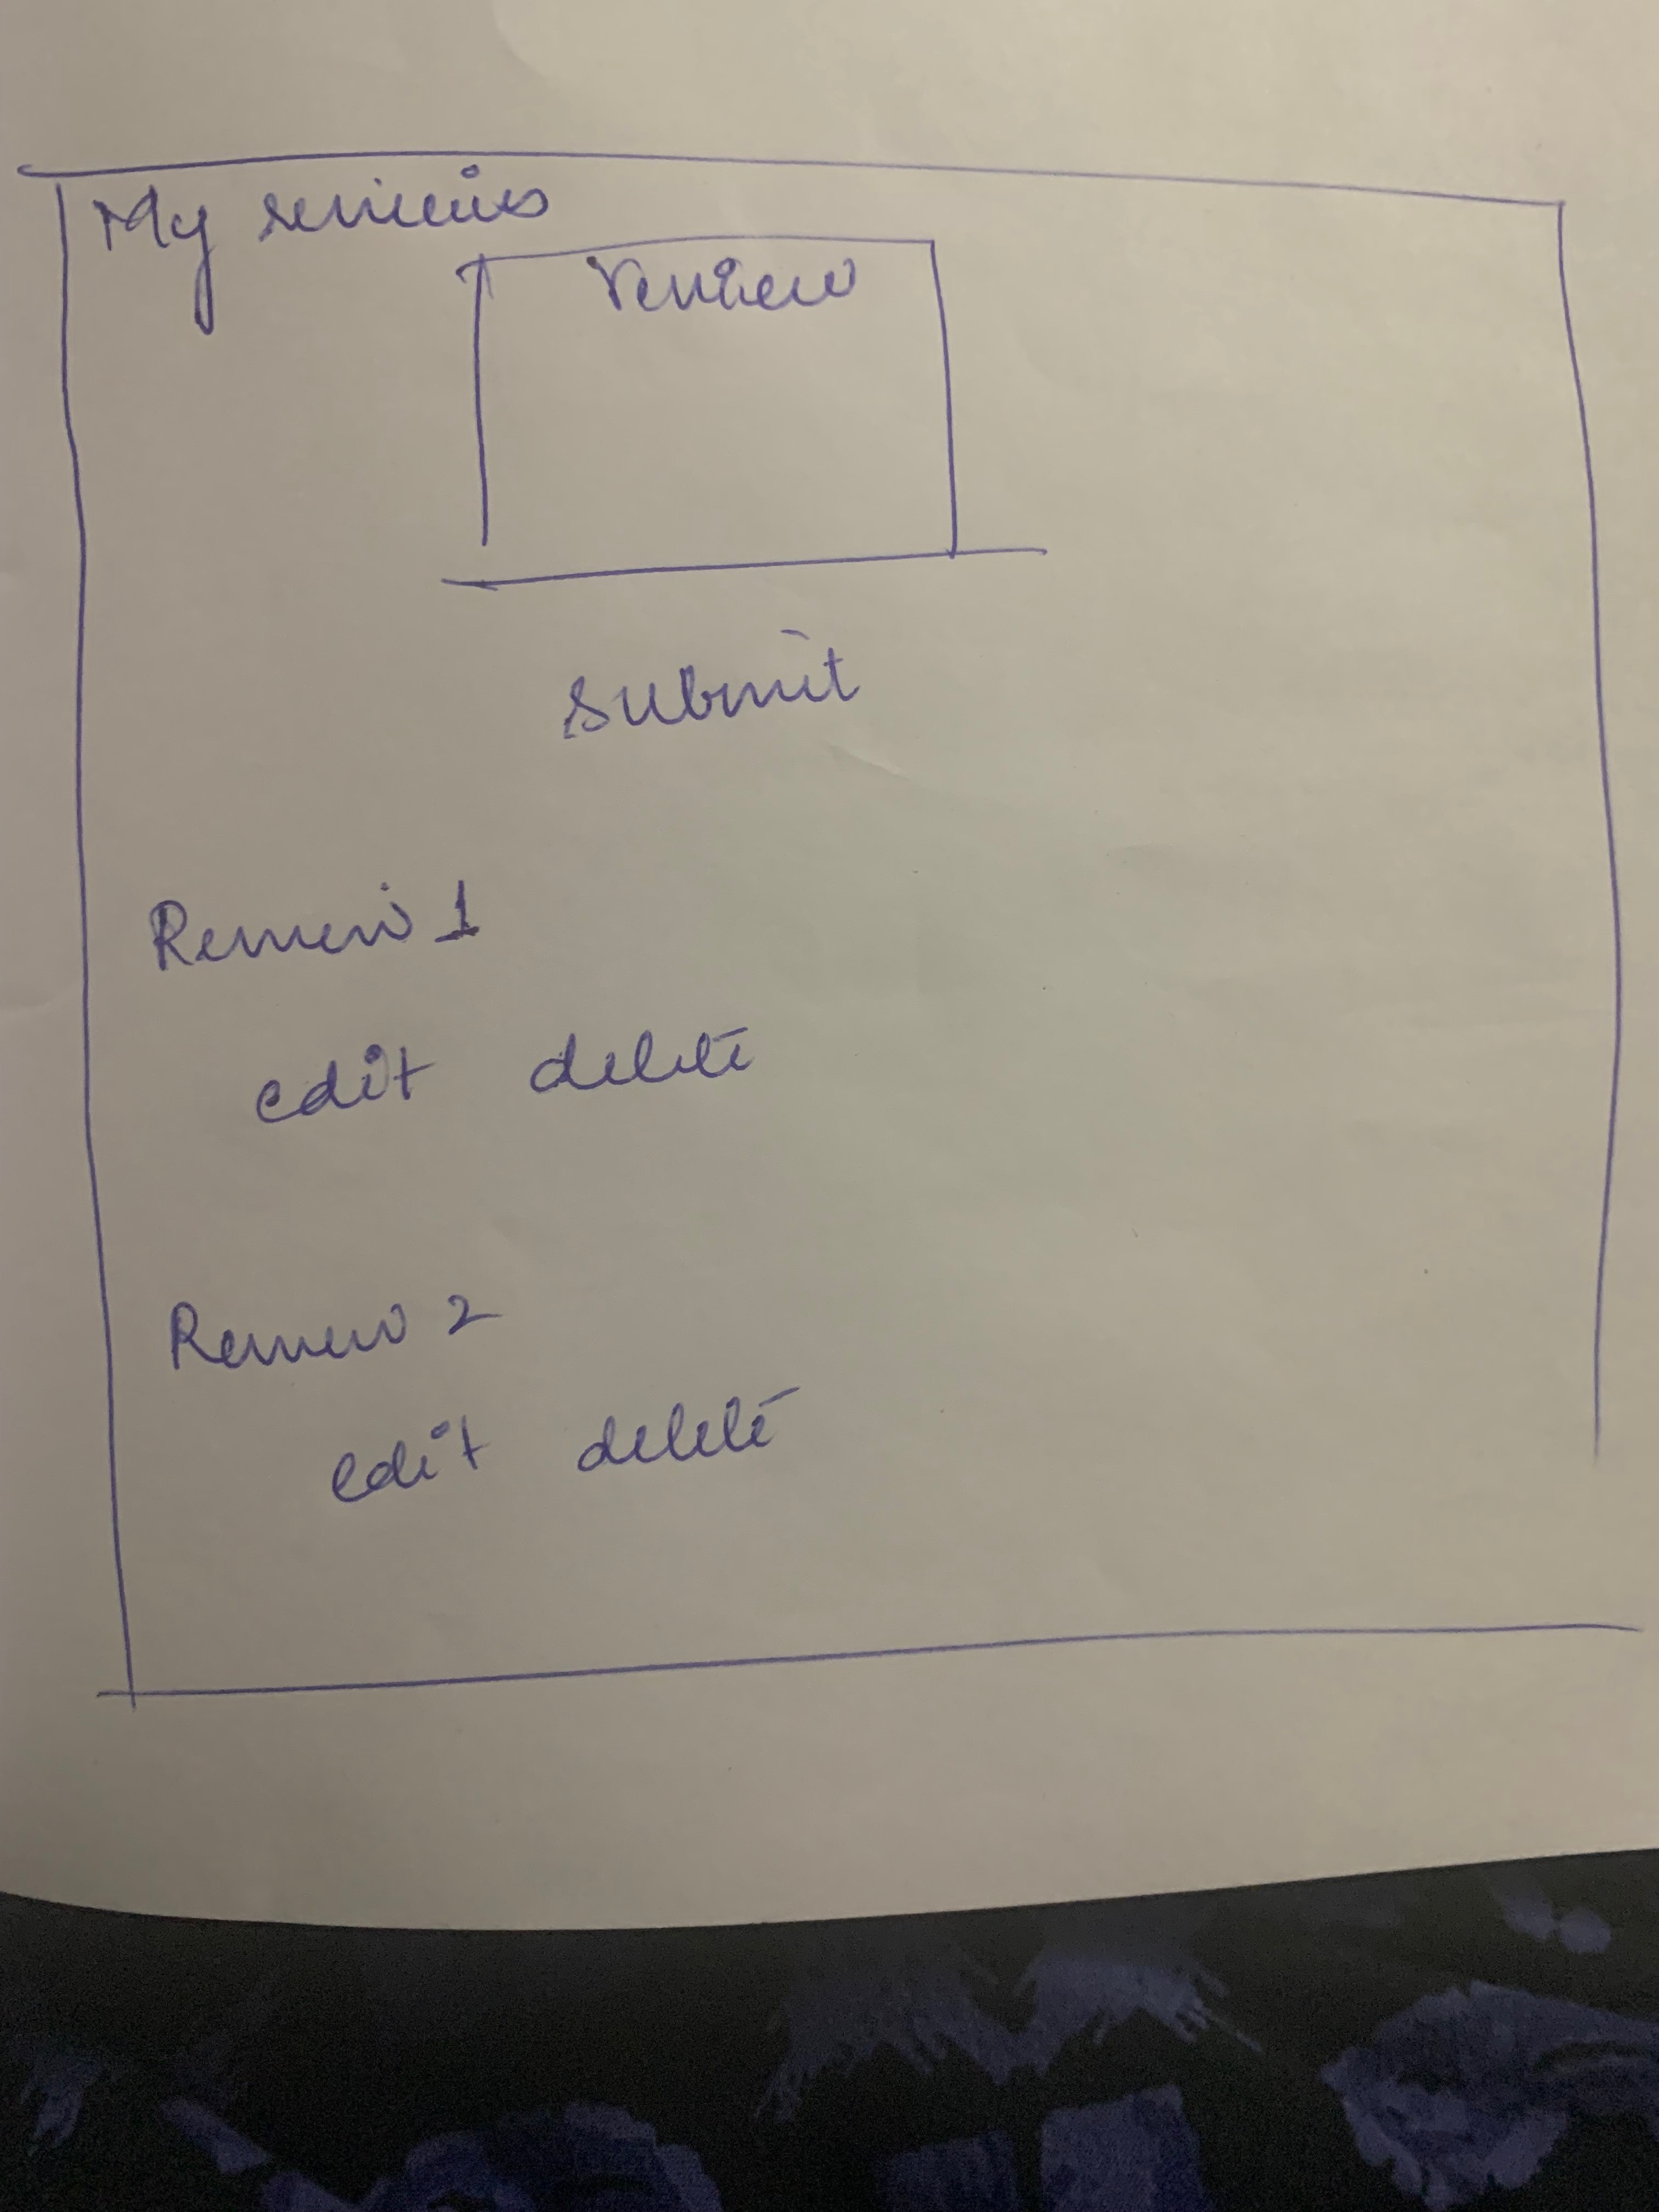 My reviews
review
submit
Review 1
edit delete
Review 2
edit delete